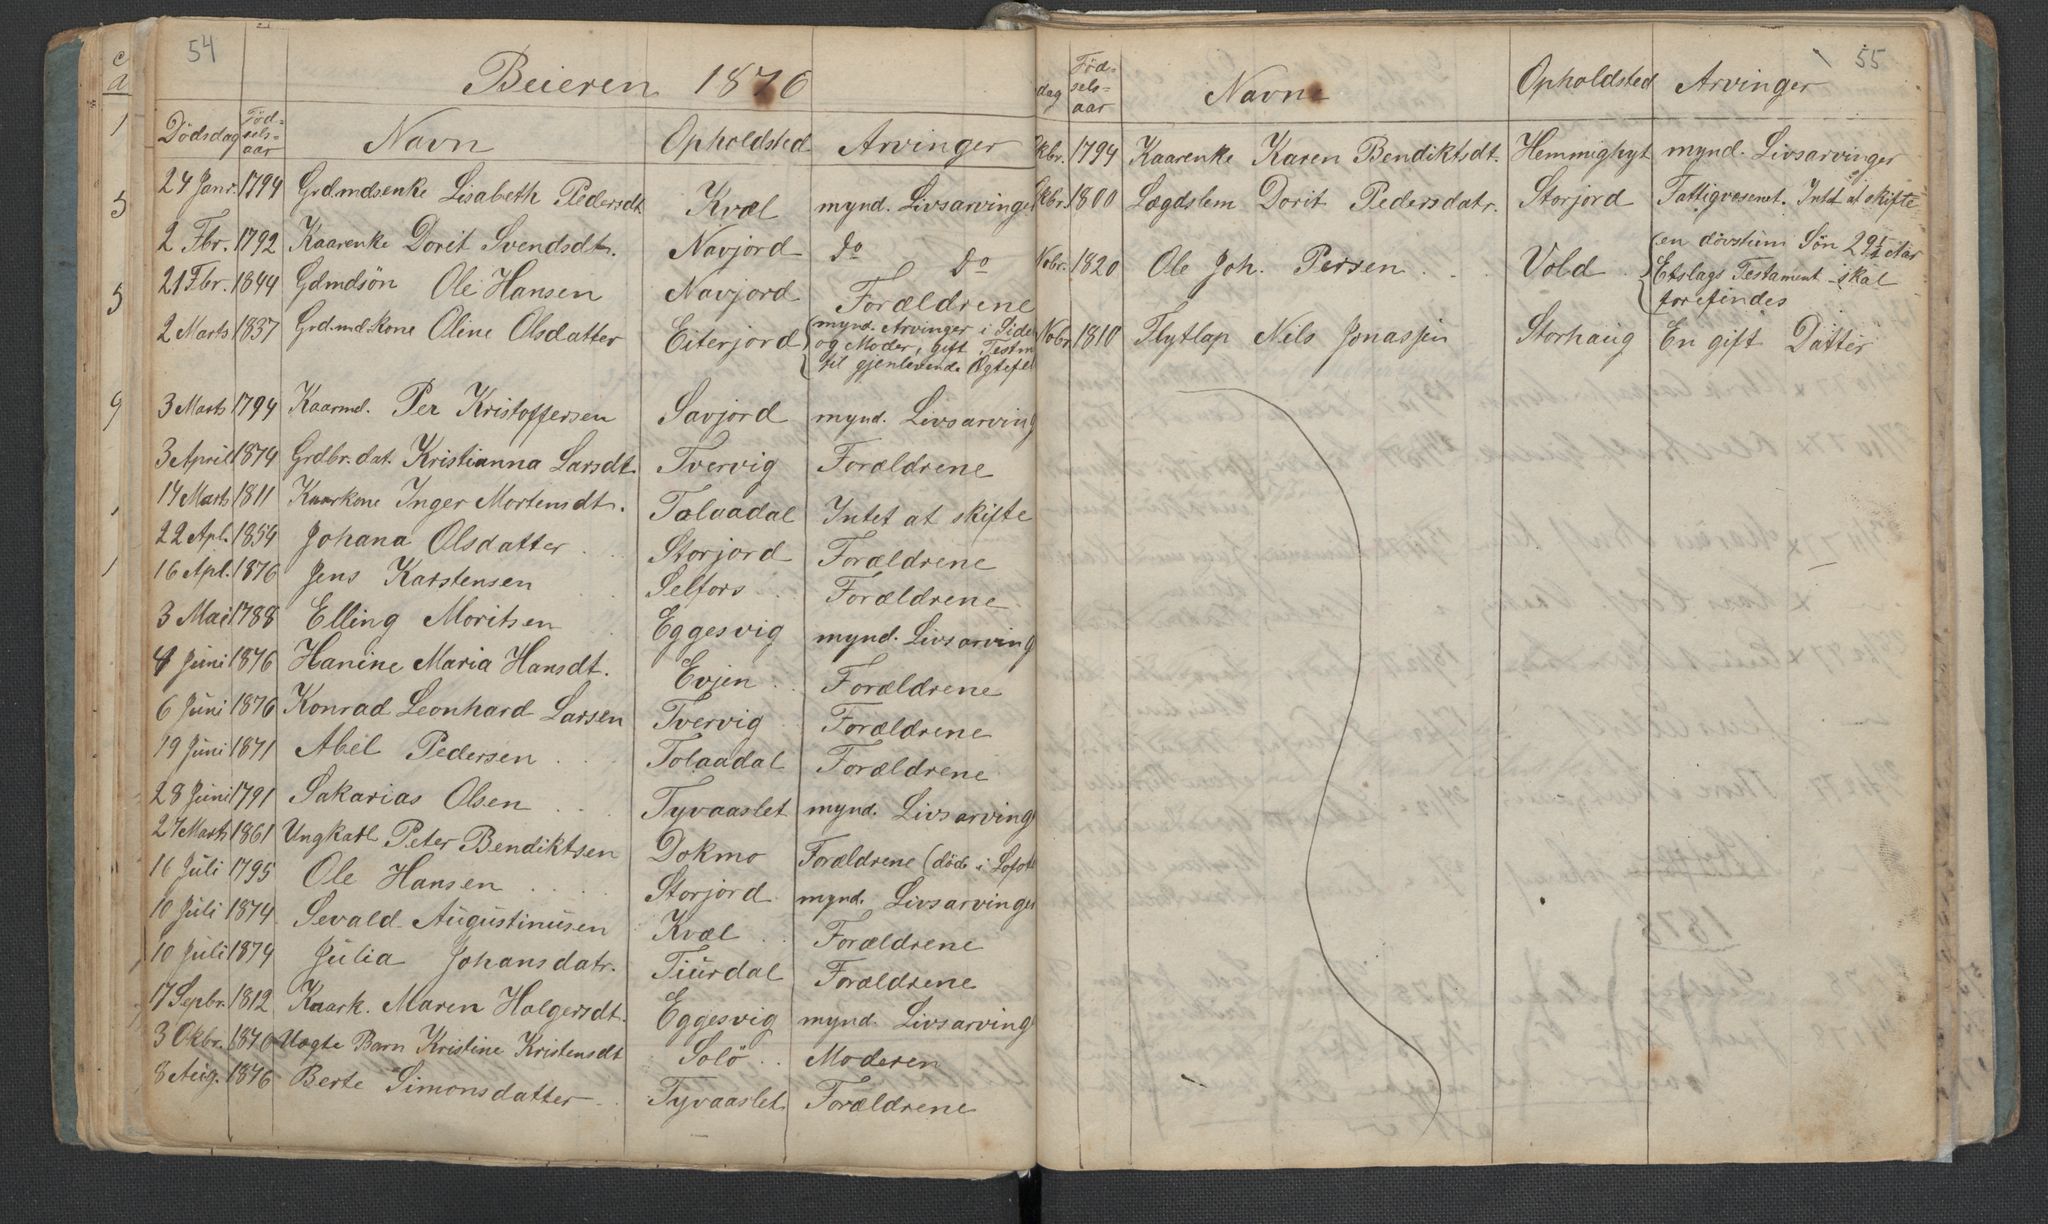 54
Beieren 1876
Dödsdag Föd-sels-aar Navn Opholdsted Arvinger
24 Janr. 1794 Grdmdsenke Lisabeth Pedersdt Kvæl mynd. Livsarvinger
2 Fbr. 1792 Kaarenke Dorit Svendsdt. Navjord do do
21 Fbr. 1844 Gdmdsön Ole Hansen Navjord Forældrene
2 Marts 1837 Grd.md.kone Oline Olsdatter Eiterjord mynd. Arvinger i Side
og Moder, gift, Testm
til gjenlevende Ægtefel
3 Marts 1794 Kaarmd. Per Kristoffersen Savjord mynd. Livsarving
3 April 1874 Grdbr. dat. Kristianna Larsdt. Tvervig Forældrene
14 Marts 1811 Kaarkone Inger Mortensdt. Tolaadal Intet at skifte
22 Apl. 1854 Johana Olsdatter Storjord Forældrene
16 Apl. 1876 Jens Karstensen Selfors Forældrene
3 Mai 1788 Elling Moritsen Eggesvig mynd. Livsarving
4 Juni 1876 Hanine Maria Hansdt. Evjen Forældrene
6 Juni 1876 Konrad Leonhard Larsen Tvervig Forældrene
19 Juni 1871 Abel Pedersen Tolaadal Forældrene
28 Juni 1791 Sakarias Olsen Tyvaaslet mynd. Livsarving
27 Marts 1861 Ungkarl Peter Bendiktsen Dokmo Forældrene (döde i Lofot
16 Juli 1795 Ole Hansen Storjord mynd. Livsarvinger
10 Juli 1874 Sevald Augustinusen Kvæl Forældrene
10 Juli 1874 Julia Johansdatr. Tiurdal Forældrene
17 Sepbr. 1812 Kaark. Maren Holgersdt. Eggesvig mynd. Livsarving
3 Okbr. 1876 Uægte Barn Kristine Kristensdt Solö Moderen
8 Aug. 1876 Berte Simonsdatter Tyvaaslet Forældrene
55
dag Föd-sels-aar Navne Opholdsted Arvinger
kbr. 1794 Kaarenke Karen Bendiktsdt. Hemmighyt mynd. Livsarvinger
kbr. 1800 Lægdslem Dorit Pedersdatr. Storjord Fattigvesenet. Intet at skifte
Nobr. 1820 Ole Joh. Persen Vold en dövstum Sön 29½ Aar
Etslags Testament skal
forefindes
Nobr 1810 Flytlap Nils Jonassen Storhaug En gift Datter